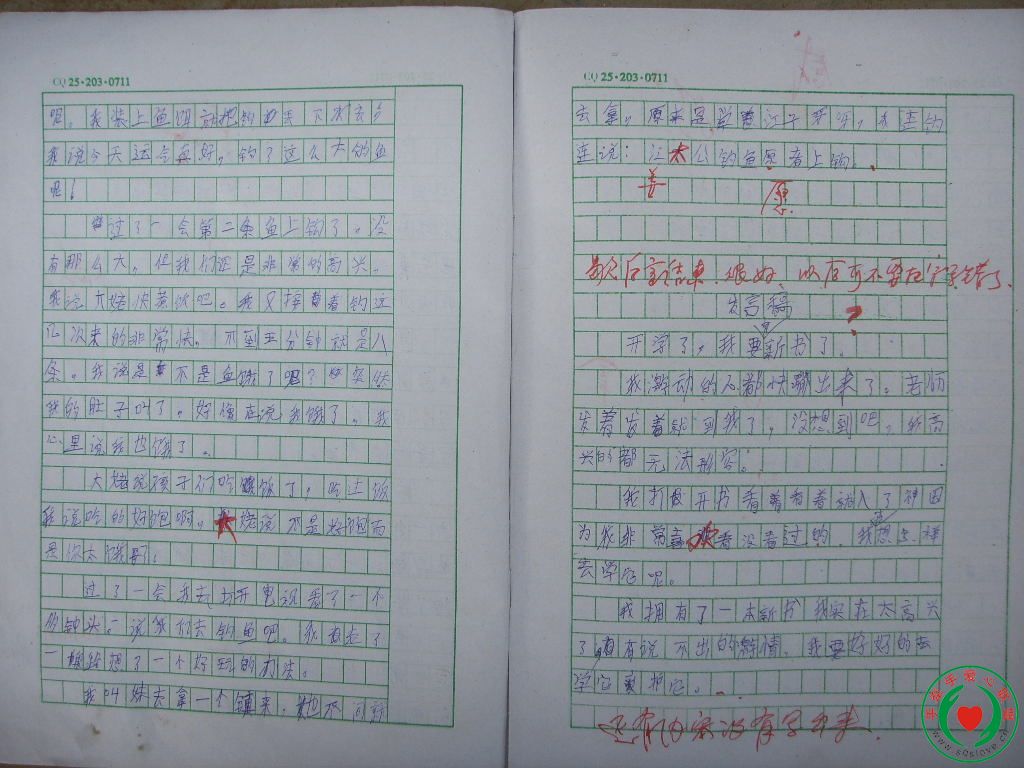 CQ 25·203·0711
呢。我装上鱼饵就把钓鱼丢下水去了
我说今天运气真好,钓了这么大的鱼
呢!
过了一会第二条鱼上钩了。没
有那么大。但我们还是非常的高兴。
我说大姥快英说吧。我又接着钓这
几次来的非常快。不到五分钟就是八
条。我说是不是鱼饿了呢?突然
我的肚子叫了。好像在说我饿了。我
心里说我也饿了。
大姥说孩子们吃饭了,吃过饭
我说吃的好饱啊。大姥说不是好饱而
是你太饿了
过了一会我去打开电视看了一个
多钟头。说我们去钓鱼吧。我看走了
一想想了一个好玩的办法。
我叫妹去拿一个镇来,她不可
CQ 25·203·0711
去拿。原来是学着江子牙呀,我望钓
连说:江太公钓鱼原者上钩。
姜 愿
最后结束很好,以后可不要在字写错了
发言稿
开学了,我要新书了。
我激动的心都快跳出来了。老师
发着发着就到我了,没想到吧,我高
兴的都无法形容。
我打开书看着看着就入了神因
为我非常喜欢看没看过的。我想怎样
去学它呢。
我拥有了一本新书我实在太高兴
了有说不出的激情。我要好好的去
学它爱护它。
还有内容没有写出来。
手拿手爱心联盟
www.sqslove.cn